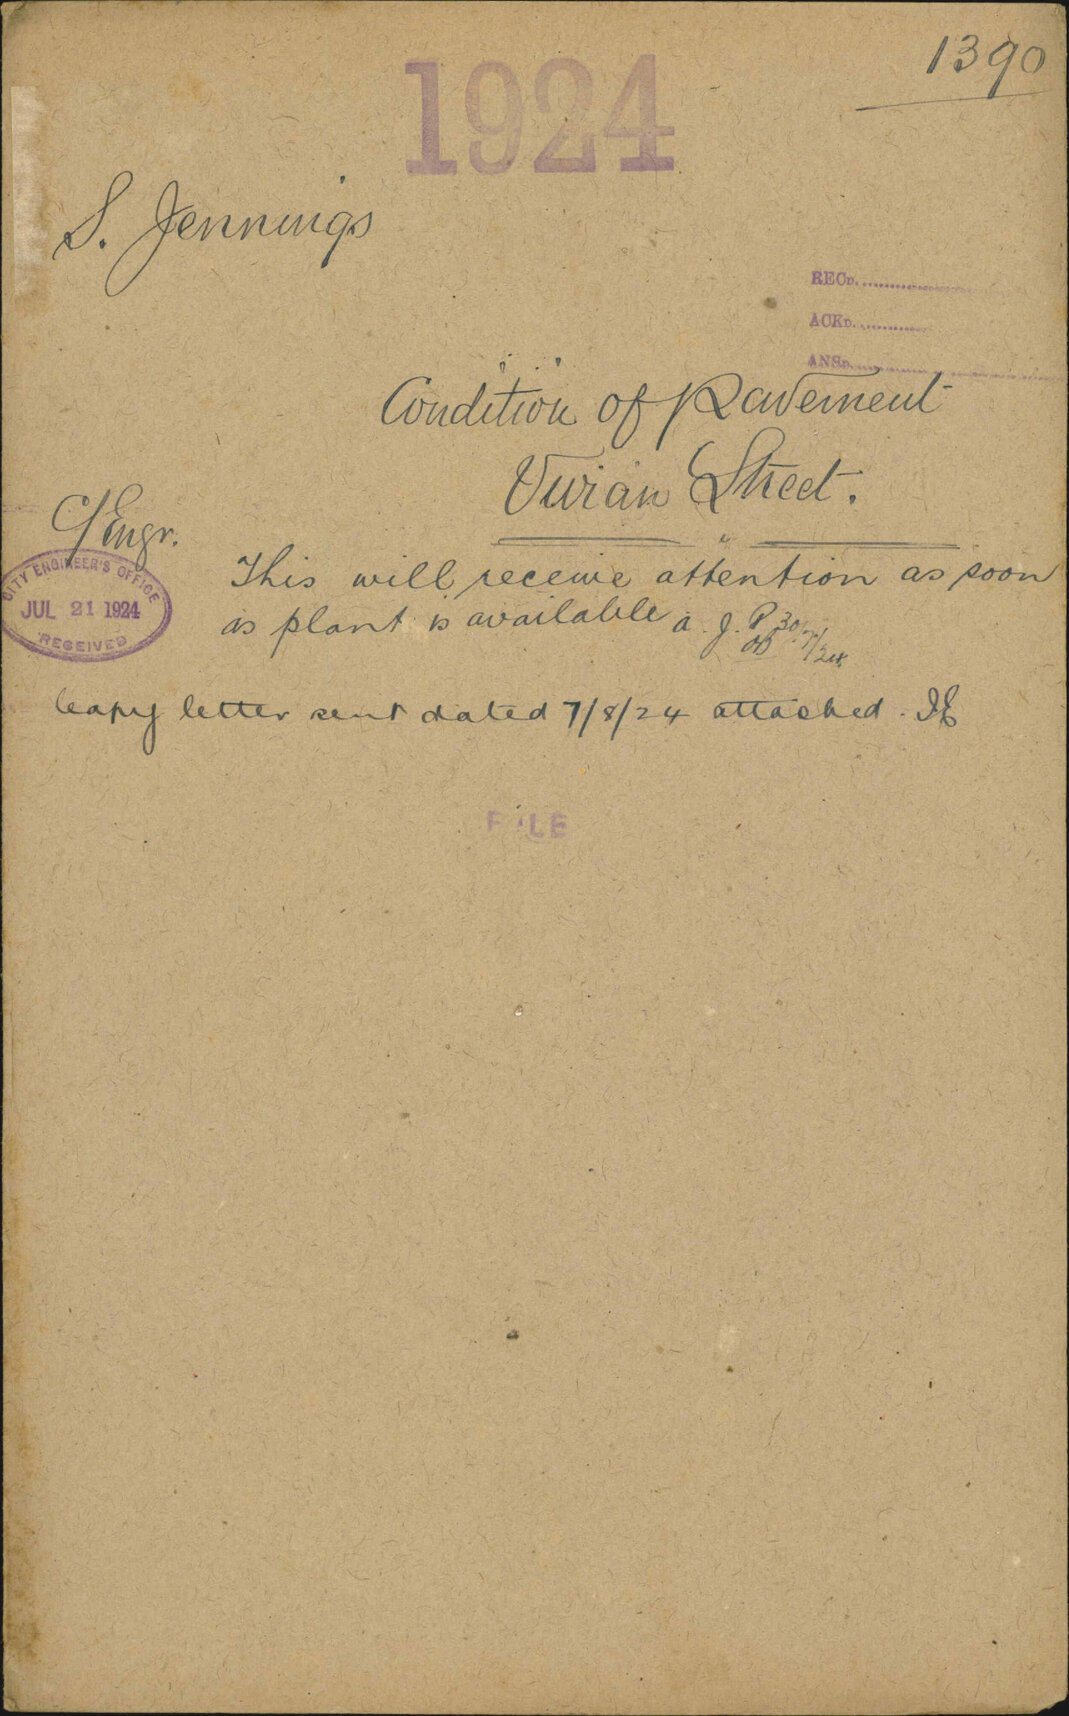 1390
1924
S. Jennings
RECD.
ACKD.
ANSD.
Condition of Pavement
Vivian Street.
C/Engr.
CITY ENGINEER'S OFFICE
JUL 21 1924
RECEIVED
This will receive attention as soon
as plant is available a. J. P. 30/7/24
Copy letter sent dated 7/8/24 attached.
FILE